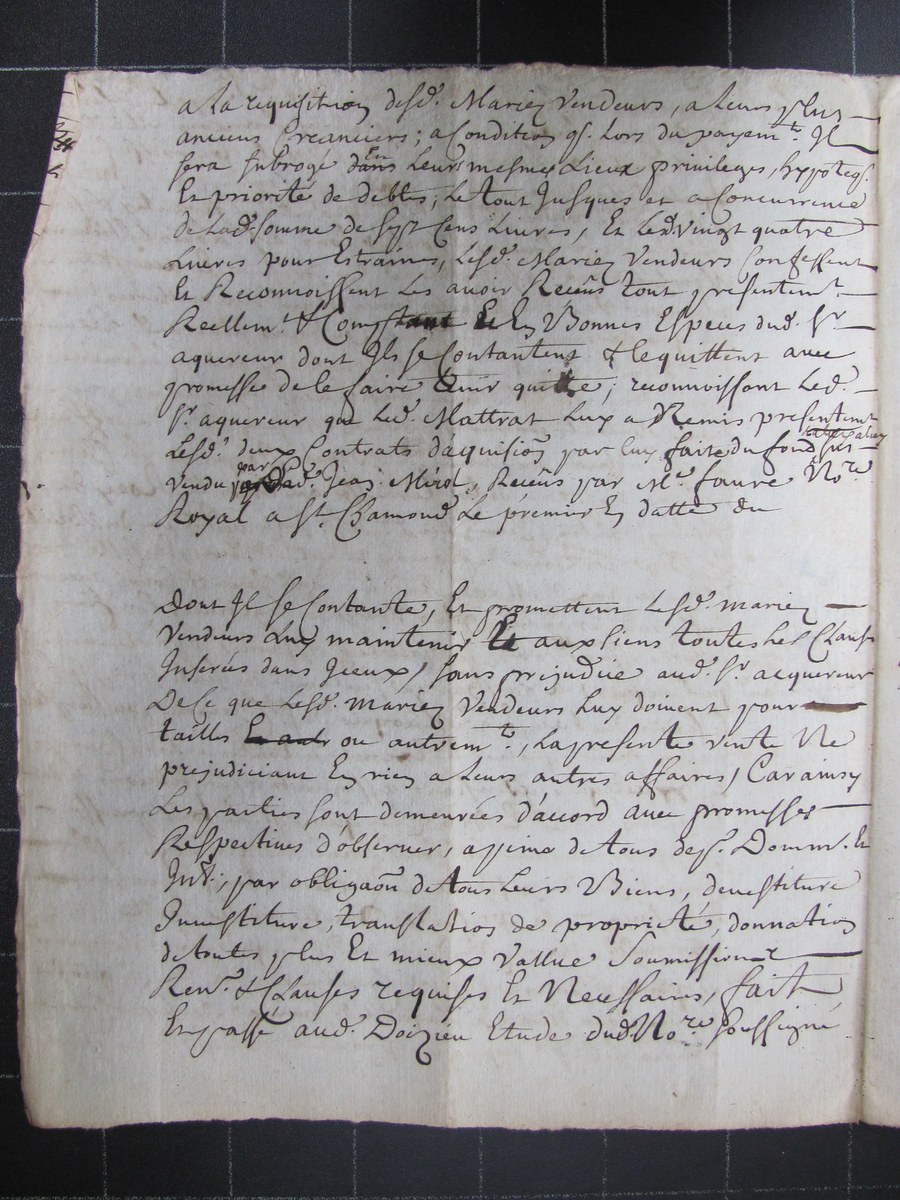 a La requisition desd. Mariez vendeurs, a Leurs plus
anciens Creanciers; a Condition q. Lors du payem.t Il
sera subrogé En Leurs mesmes Lieux privileges, hypoteq.
Et priorité de debtes, Le tout Jusques et a Concurrence
de Lad. somme de sept Cens Livres, Et Lesd. vingt quatre
Livres pour Estraines, Lesd. Mariez Vendeurs Confessent
Et Reconnoissent Les avoir Recûs tout presentem.t
Reellem.t & Comptant En Bonnes Especes dud. Sr.
aquereur dont Ils se Contantent & Le quittent avec
promesse de le faire tenir quitte; reconnoissant Led.
Sr. aquereur que Led. Mattrat Lux a Remis presentemt
Lesd. deux Contrats d'aquisiõn par luy faite du fond sus
vendu par Jean Recûs par Me. faure No.re
Royal a St. Chamond Le premier En datte du
Dont Il se Contante, Et promettent Lesd. mariez
Vendeurs Luy maintenir aux siens toutes les Clauses
Inserées dans Iceux, sans prejudice aud. Sr. acquereur
De Ce que Lesd. mariez Vendeurs Luy doivent pour
tailles ou autrem.t, La presente vente Ne
prejudiciant En rien a Leurs autres affaires, Car ainsy
Les parties sont demeurées d'accord avec promesses
Respectives d'observer, a peine de tous desp. Domm. Et
Int., par obligaõn de tous Leurs Biens, devestiture
Investiture, translation de proprieté, donnation
de toutes plus Et mieux Vallue Soumissions
Ren.n & Clauses requises Et Necessaires, fait
Et passé aud. Doizieu Etude dud. No.re soussigné